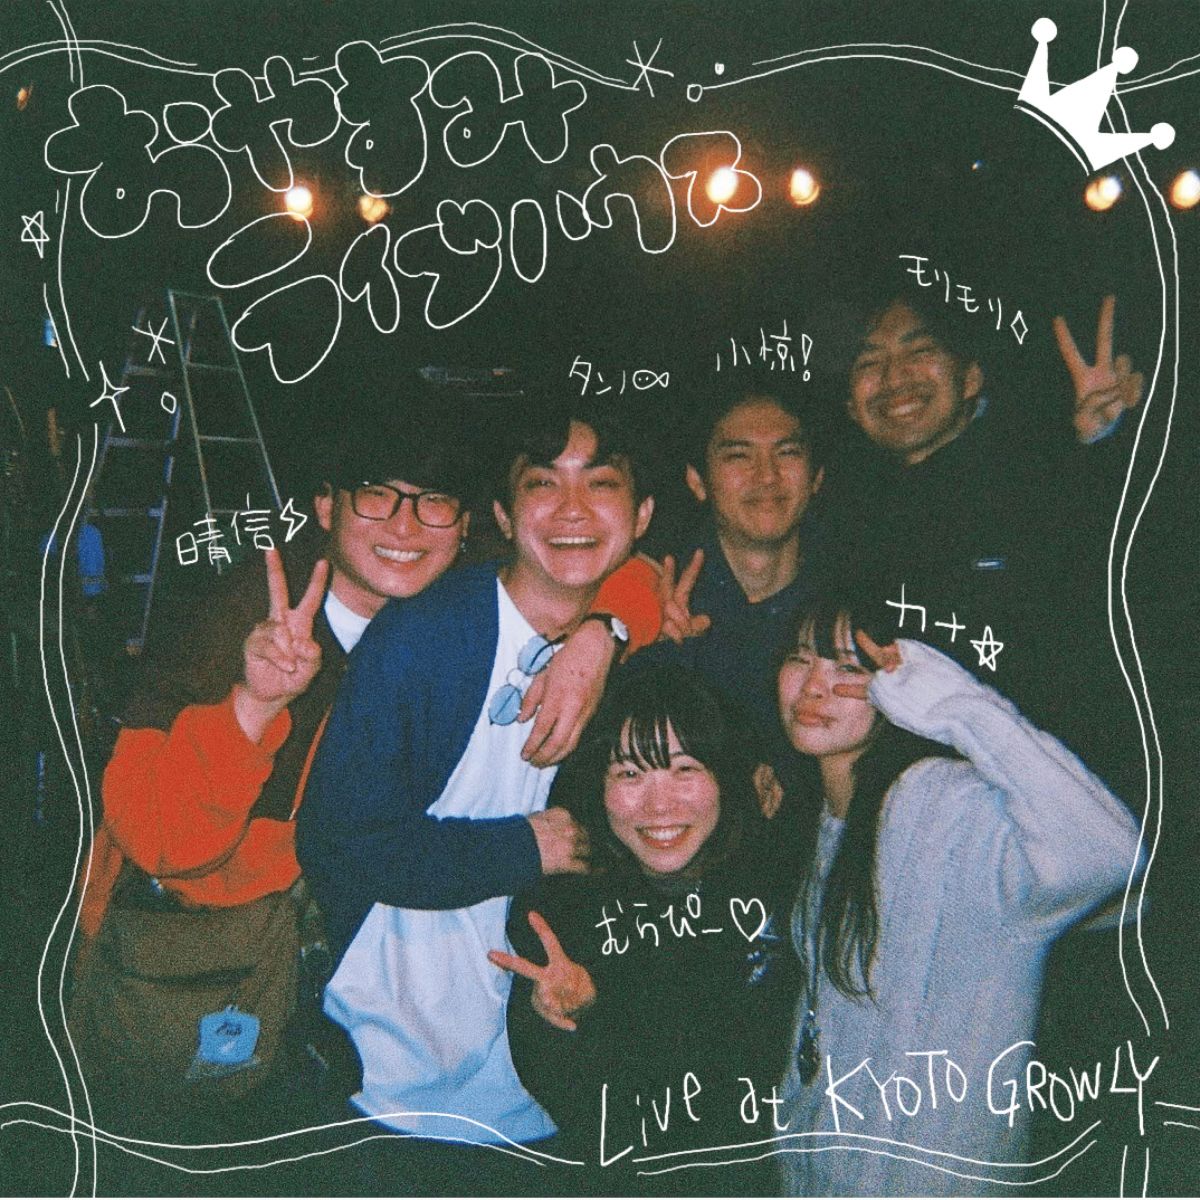 おやすみ
ライブハウス
モリモリ
小惊!
タンノ
晴信
カナ
むらぴー♡
Live at KYOTO GROWLY